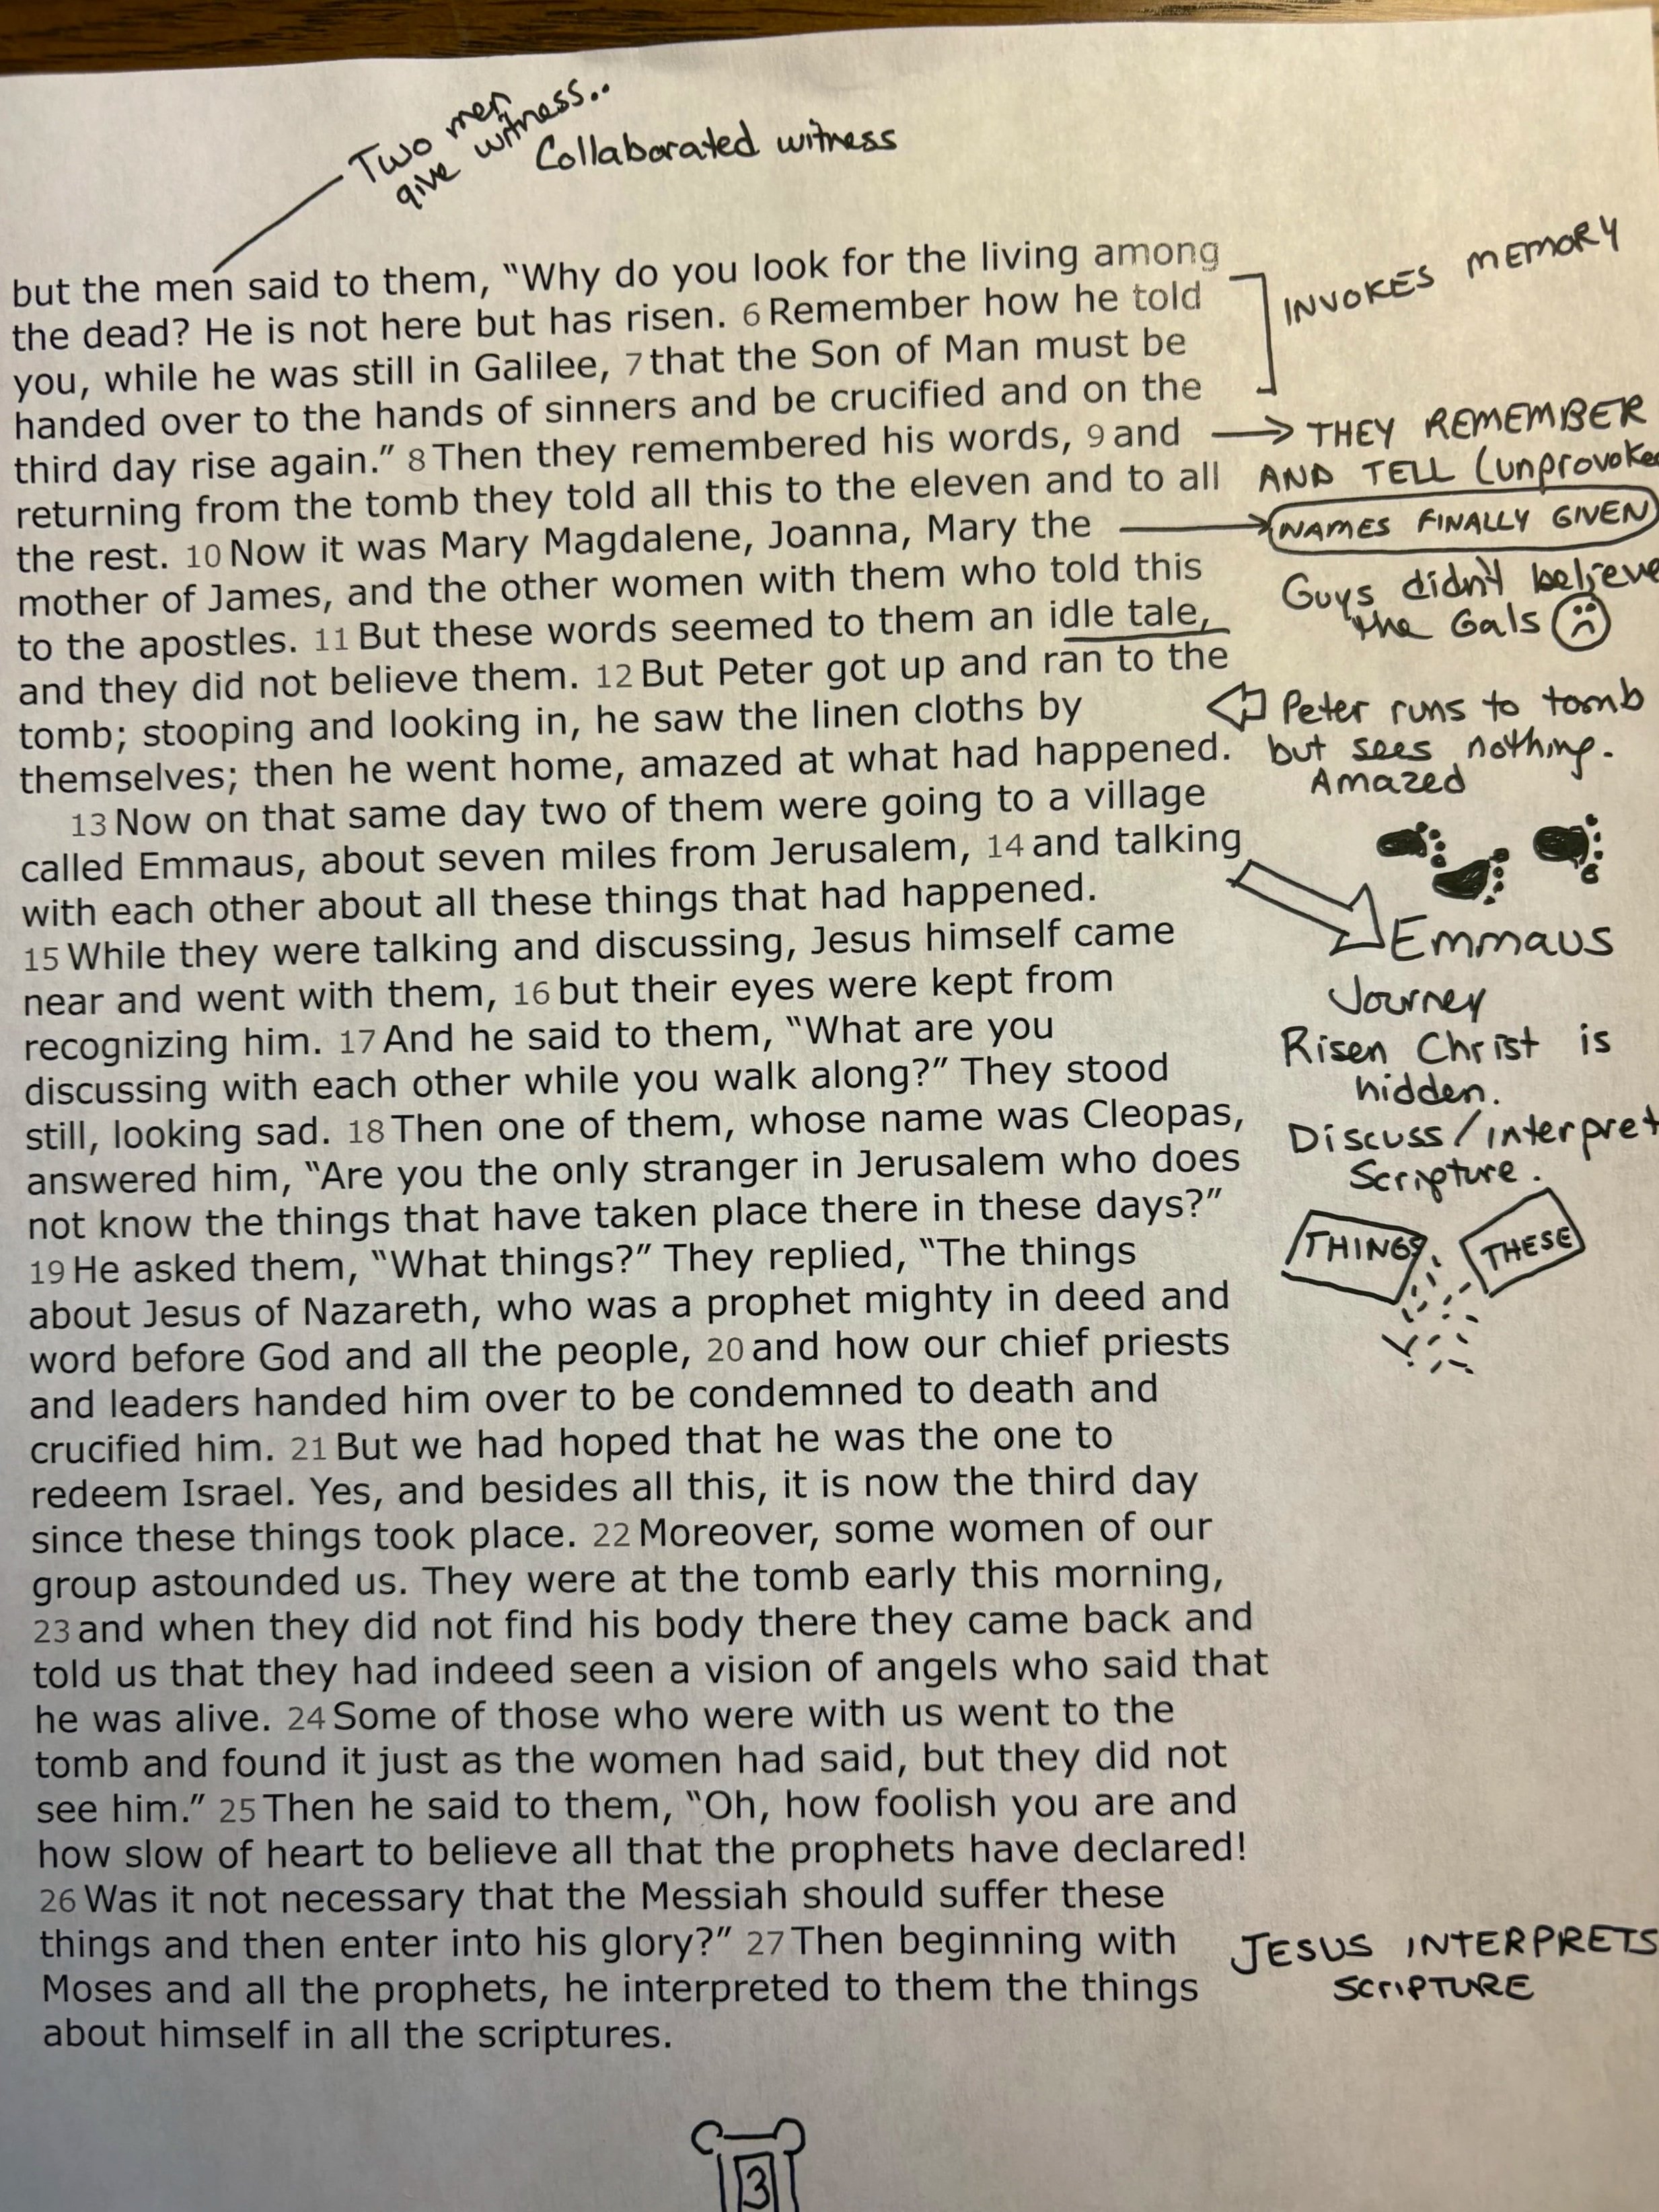 Two men
give witness..
Collaborated witness
but the men said to them, “Why do you look for the living among
the dead? He is not here but has risen. 6 Remember how he told
you, while he was still in Galilee, 7 that the Son of Man must be
handed over to the hands of sinners and be crucified and on the
third day rise again.” 8 Then they remembered his words, 9 and
returning from the tomb they told all this to the eleven and to all
the rest. 10 Now it was Mary Magdalene, Joanna, Mary the
mother of James, and the other women with them who told this
to the apostles. 11 But these words seemed to them an idle tale,
and they did not believe them. 12 But Peter got up and ran to the
tomb; stooping and looking in, he saw the linen cloths by
themselves; then he went home, amazed at what had happened.
13 Now on that same day two of them were going to a village
called Emmaus, about seven miles from Jerusalem, 14 and talking
with each other about all these things that had happened.
15 While they were talking and discussing, Jesus himself came
near and went with them, 16 but their eyes were kept from
recognizing him. 17 And he said to them, “What are you
discussing with each other while you walk along?” They stood
still, looking sad. 18 Then one of them, whose name was Cleopas,
answered him, “Are you the only stranger in Jerusalem who does
not know the things that have taken place there in these days?”
19 He asked them, “What things?” They replied, “The things
about Jesus of Nazareth, who was a prophet mighty in deed and
word before God and all the people, 20 and how our chief priests
and leaders handed him over to be condemned to death and
crucified him. 21 But we had hoped that he was the one to
redeem Israel. Yes, and besides all this, it is now the third day
since these things took place. 22 Moreover, some women of our
group astounded us. They were at the tomb early this morning,
23 and when they did not find his body there they came back and
told us that they had indeed seen a vision of angels who said that
he was alive. 24 Some of those who were with us went to the
tomb and found it just as the women had said, but they did not
see him.” 25 Then he said to them, “Oh, how foolish you are and
how slow of heart to believe all that the prophets have declared!
26 Was it not necessary that the Messiah should suffer these
things and then enter into his glory?” 27 Then beginning with
Moses and all the prophets, he interpreted to them the things
about himself in all the scriptures.
INVOKES MEMORY
THEY REMEMBER
AND TELL (unprovoke
NAMES FINALLY GIVEN
Guys didn't believe
the Gals
Peter runs to tomb
but sees nothing.
Amazed
Emmaus
Journey
Risen Christ is
hidden.
Discuss/interpret
Scripture.
THINGS
THESE
JESUS INTERPRETS
SCRIPTURE
3